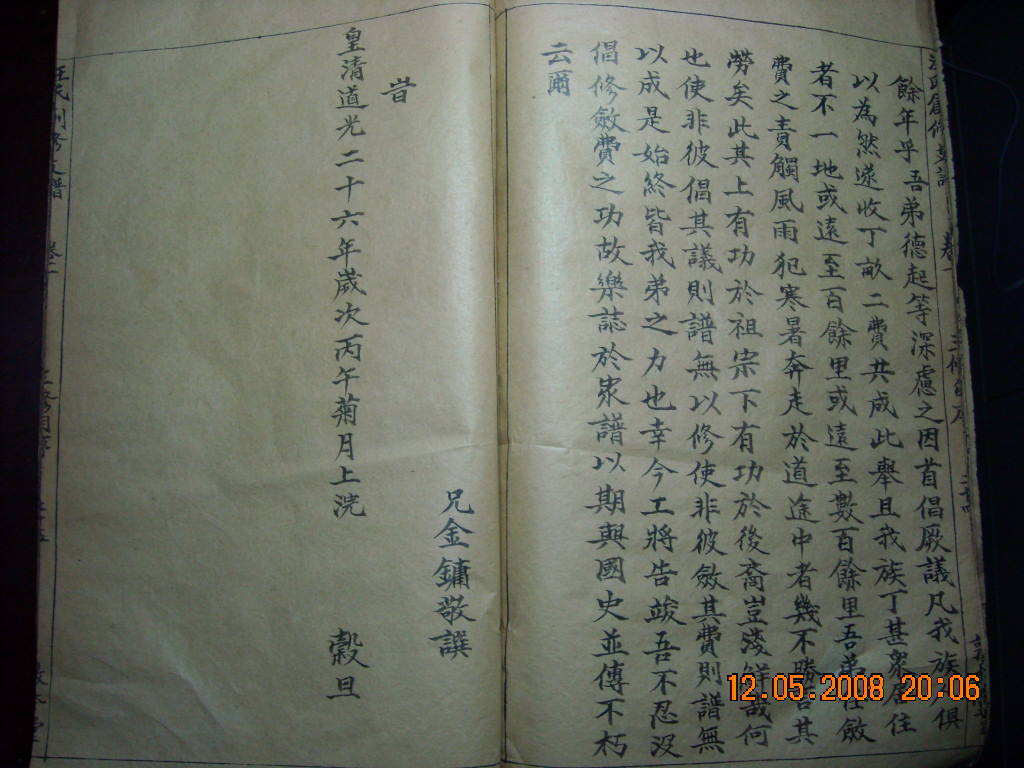 餘年乎吾弟德起等深慮之因首倡厥議凡我族户俱
以為然遂收丁畝二費共成此舉且我族丁甚衆居住
者不一地或遠至百餘里或遠至數百餘里吾弟任斂
費之責觸風雨犯寒暑奔走於道途中者幾不勝其
勞矣此其上有功於祖宗下有功於後裔豈淺鮮哉何
也使非彼倡其議則譜無以修使非彼斂其費則譜無
以成是始終皆我弟之力也幸今工將告竣吾不忍没
倡修斂費之功故樂誌於家譜以期與國史並傳不朽
云爾
兄金鏞敬譔
旹
皇清道光二十六年歲次丙午菊月上浣 穀旦
12.05.2008 20:06